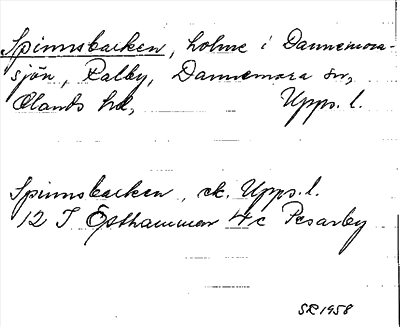 Spinnsbacken, holme i Dannemora-
sjön, Dalby, Dannemora sn,
Olands hd, Upps. l.
Spinnsbacken, ek. Upps. l.
12 I Östhammar 4c Pesarby
SR 1958